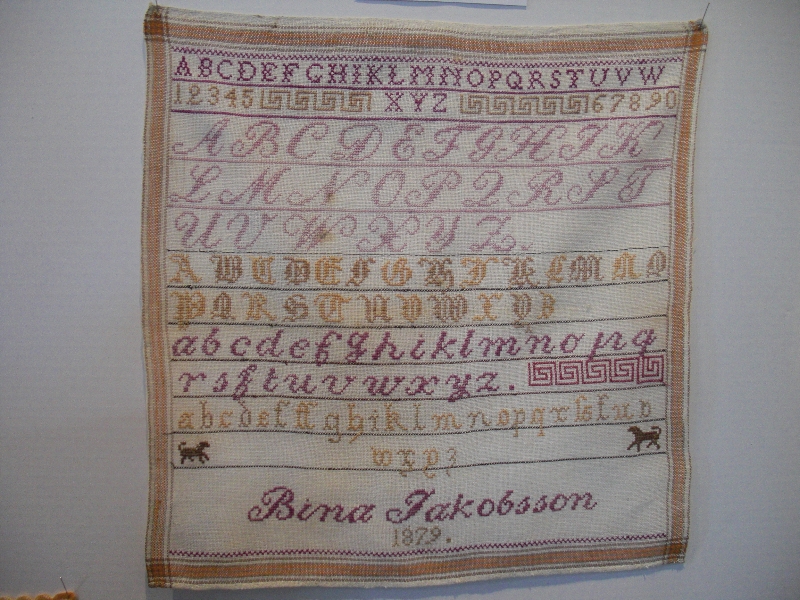 ABCDEFGHIKLMNOPQRSTUVW
12345 XYZ 67890
ABCDEFGHIK
LMNOPQRST
UVWXYZ.
ABCDEFGHIKLMNO
PQRSTUVWXYZ
abcdefghiklmnopq
rsſtuvwxyz.
abcdefffghiklmnopqrsſtuv
wxyz
Bina Jakobsson
1879.